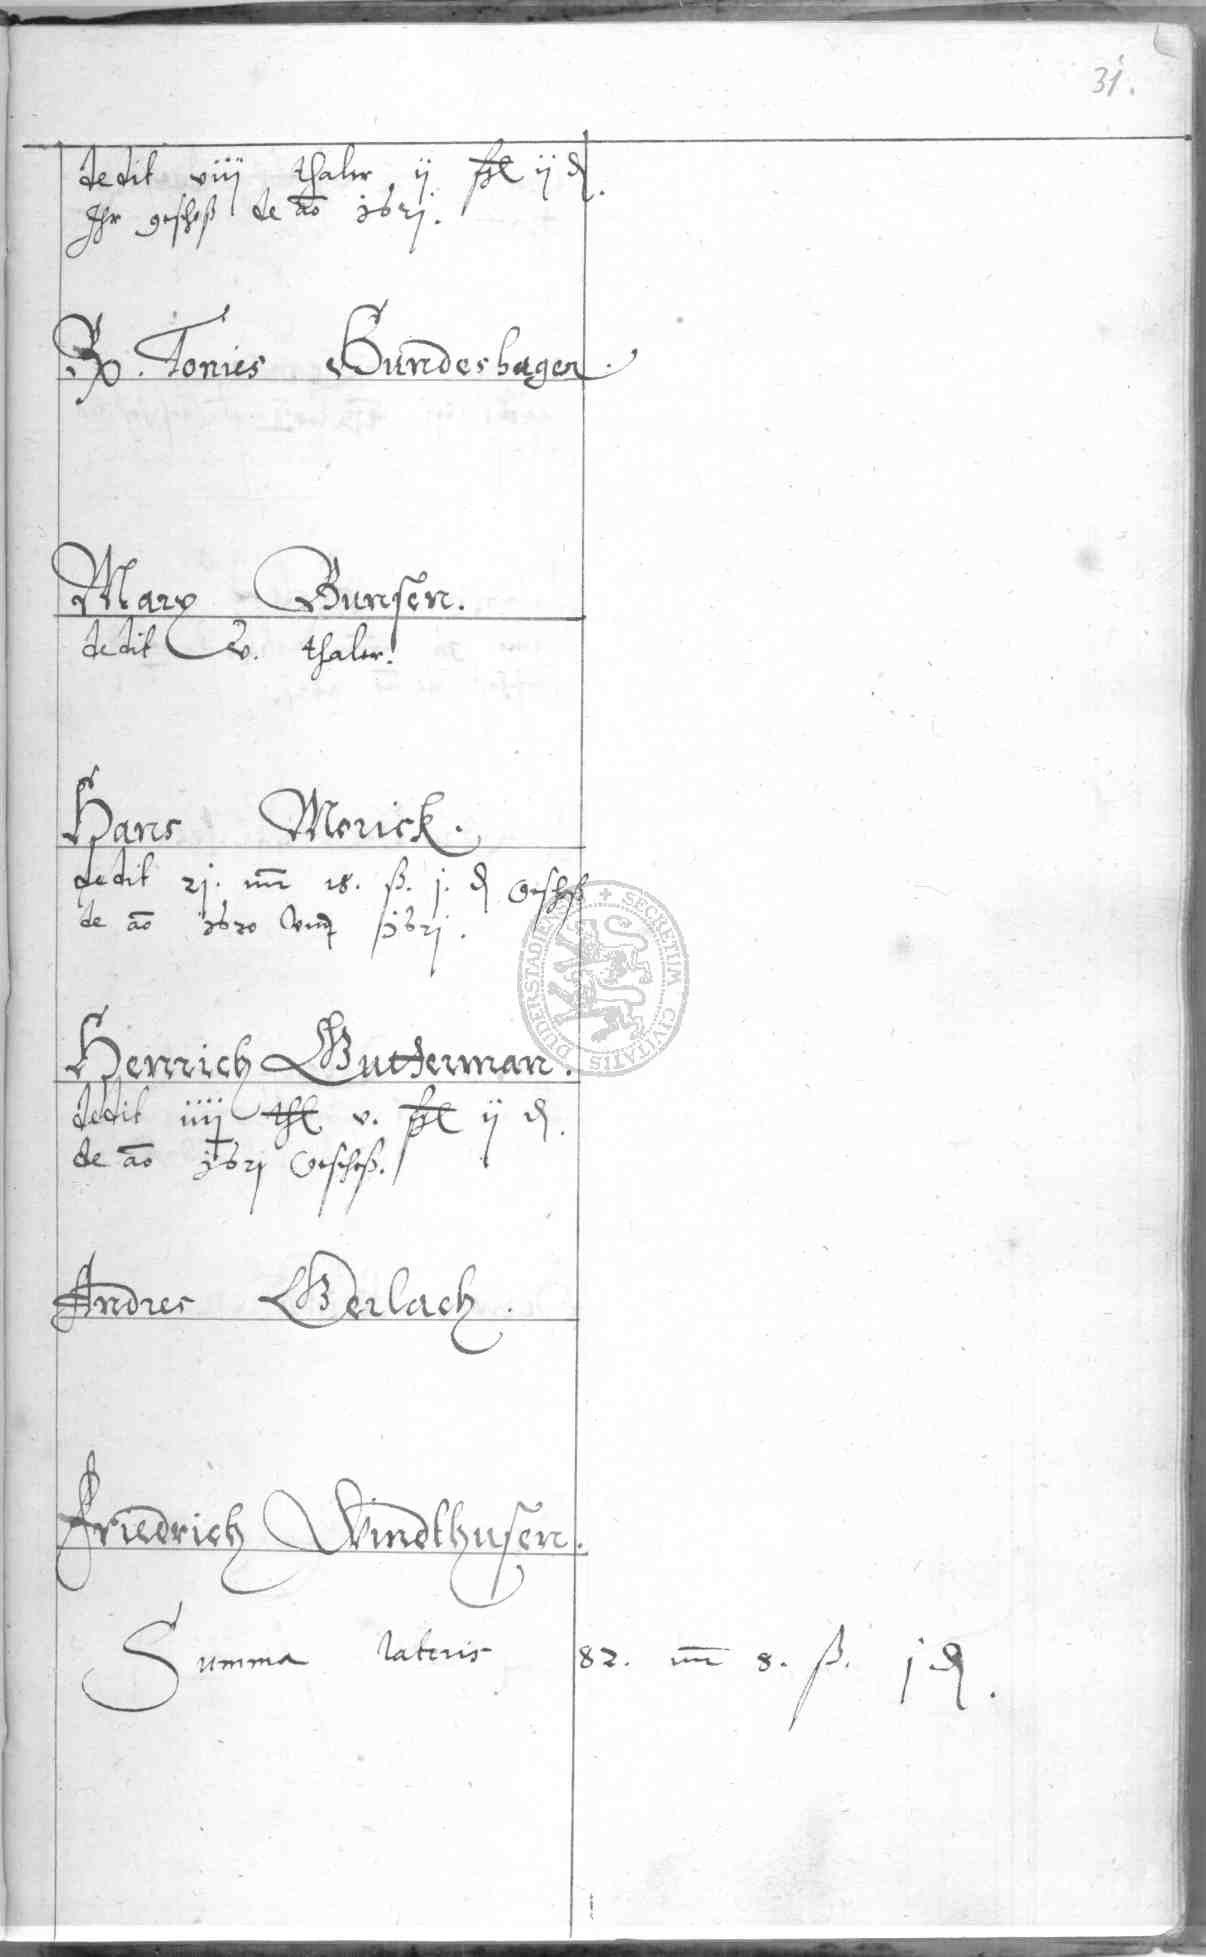 31.
dedit viiij thaler ij ßl ij ₰.
Ihr geschoß de ao 1621.
Tonies Hundeshagen.
Marx Bunsen.
dedit v. thaler.
Hans Morick.
dedit 21. mr 18. ß. j. ₰ Geschoß
de ao 1620 Vnd 1621.
Henrich Gutterman.
dedit iiij thl v. ßl ij ₰.
de ao 1621 Geschoß.
Andres Gerlach.
Friedrich Windthusen.
Summa lateris 82. mr 8. ß. j ₰.
SECRETUM CIVITATIS DUDERSTADIENSIS